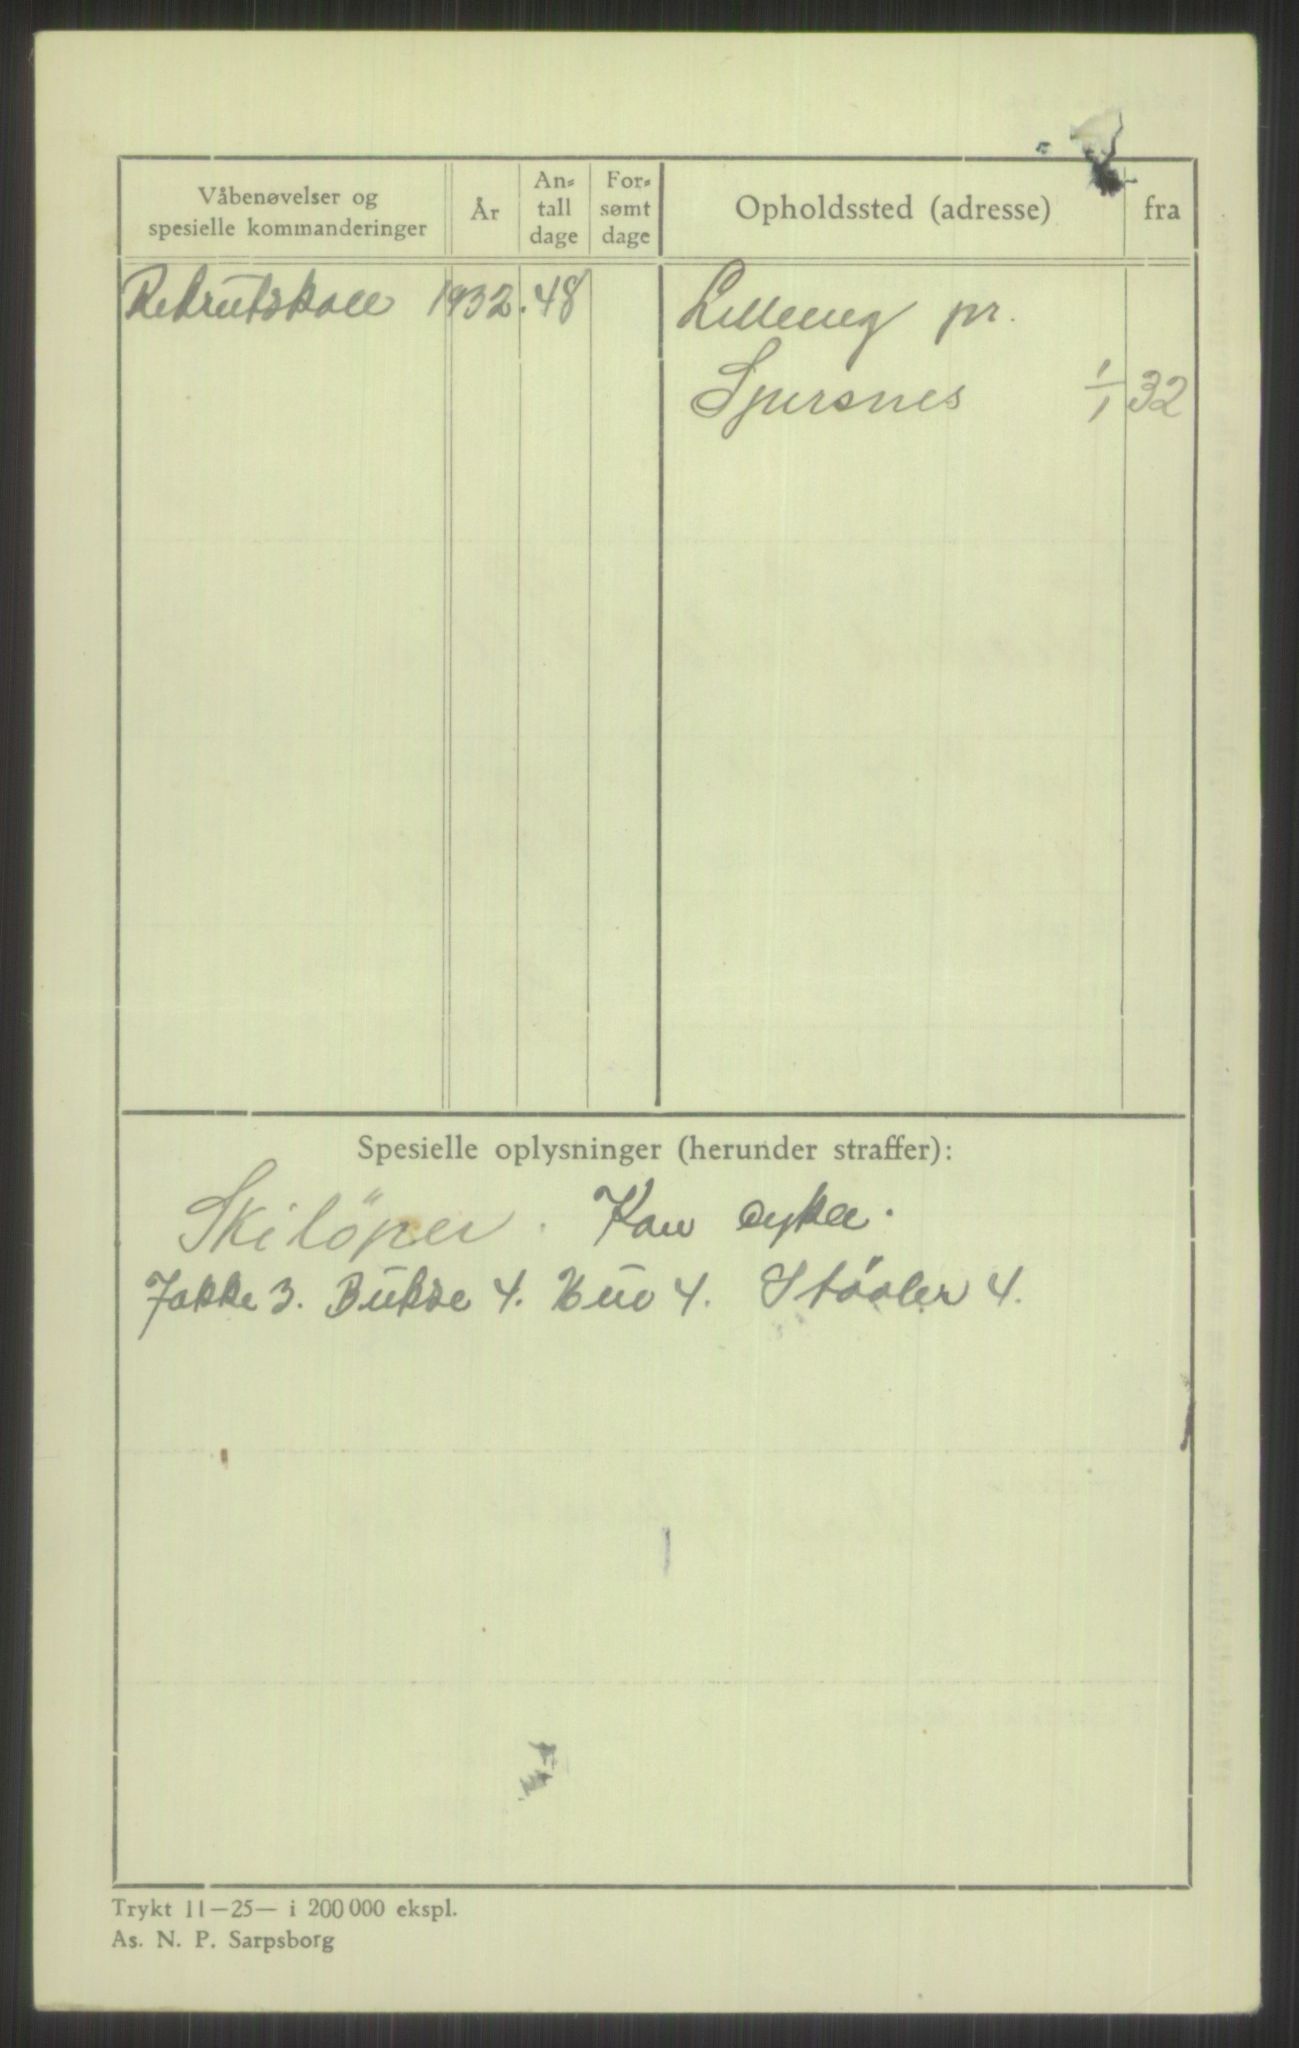 Våbenøvelser og spesielle kommanderinger
År
Antall dage
Forsømt dage
Opholdssted (adresse)
fra
Rekrutskole 1932. 48
Lilleeng pr.
Spersnes 1/1 32
Spesielle oplysninger (herunder straffer):
Skilöper. Kan cykle.
Jakke 3. Bukse 4. Hue 4. Stövler 4.
Trykt 11—25— i 200 000 ekspl.
As. N. P. Sarpsborg